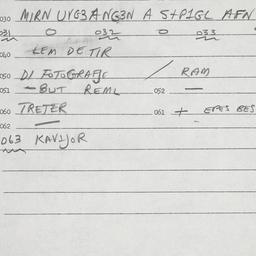 030 MIRN UYG3ANG3N A S+PIGL AFN
031 O 032 O 033
040 LEM DETIR
050 DI FOTOGRAFJE / RAM
051 — BUT REML 052 —
060 TRETER 061 + EPES BES
062 —
063 KAVIJOR